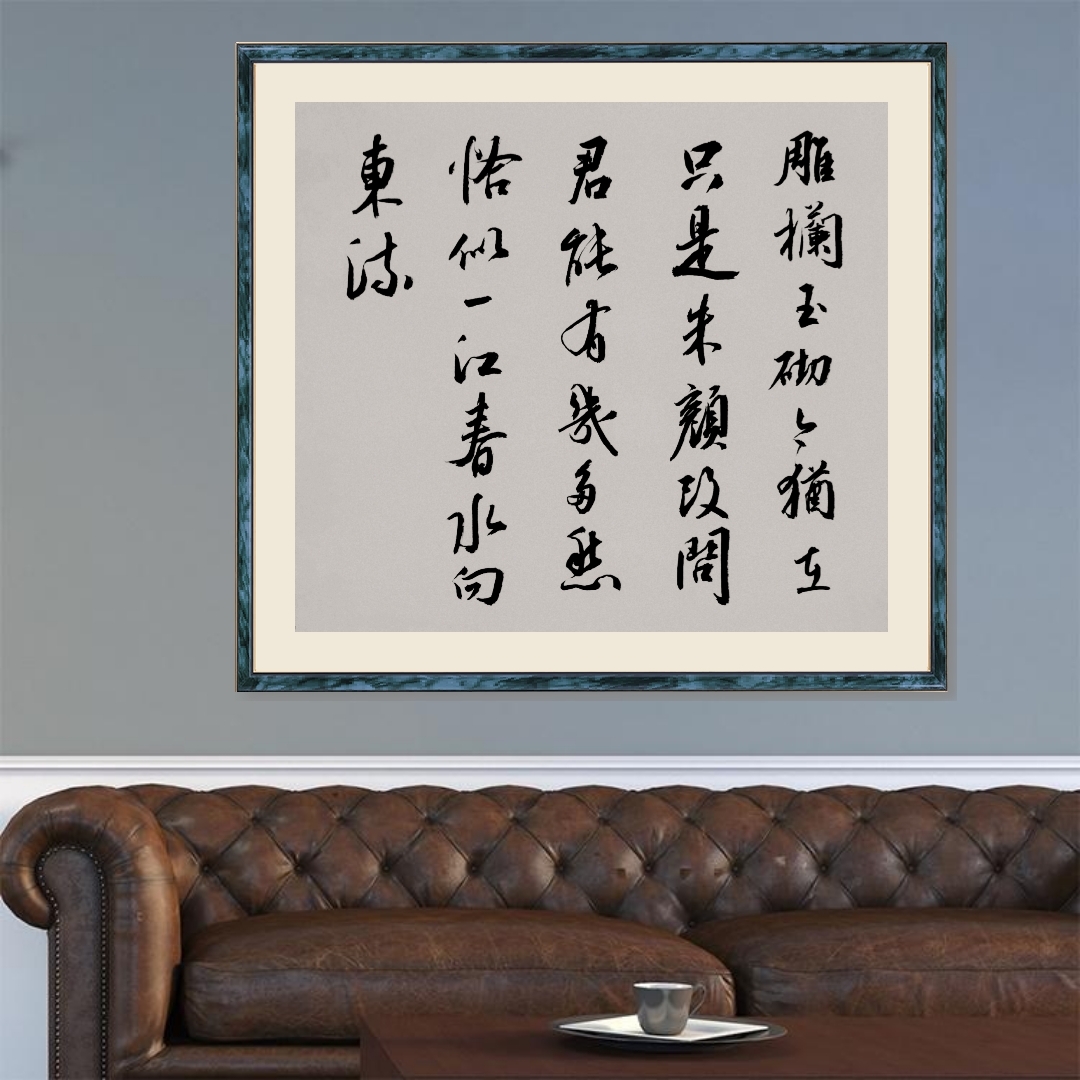 雕欄玉砌應猶在
只是朱顏改問
君能有幾多愁
恰似一江春水向
東流